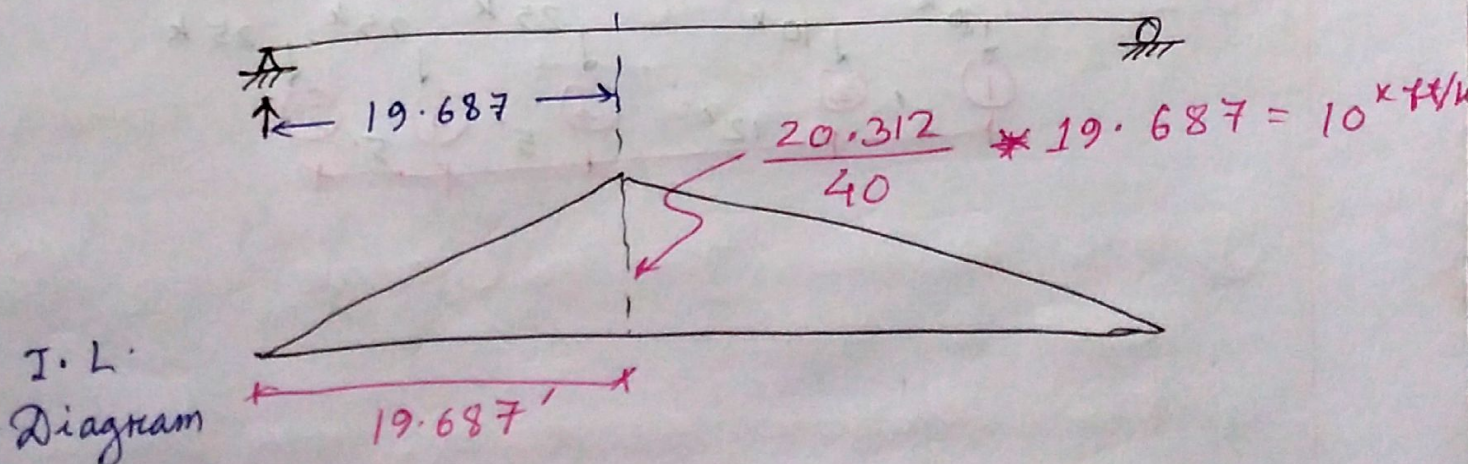 19.687
20.312 / 40 * 19.687 = 10
I. L.
Diagram
19.687'